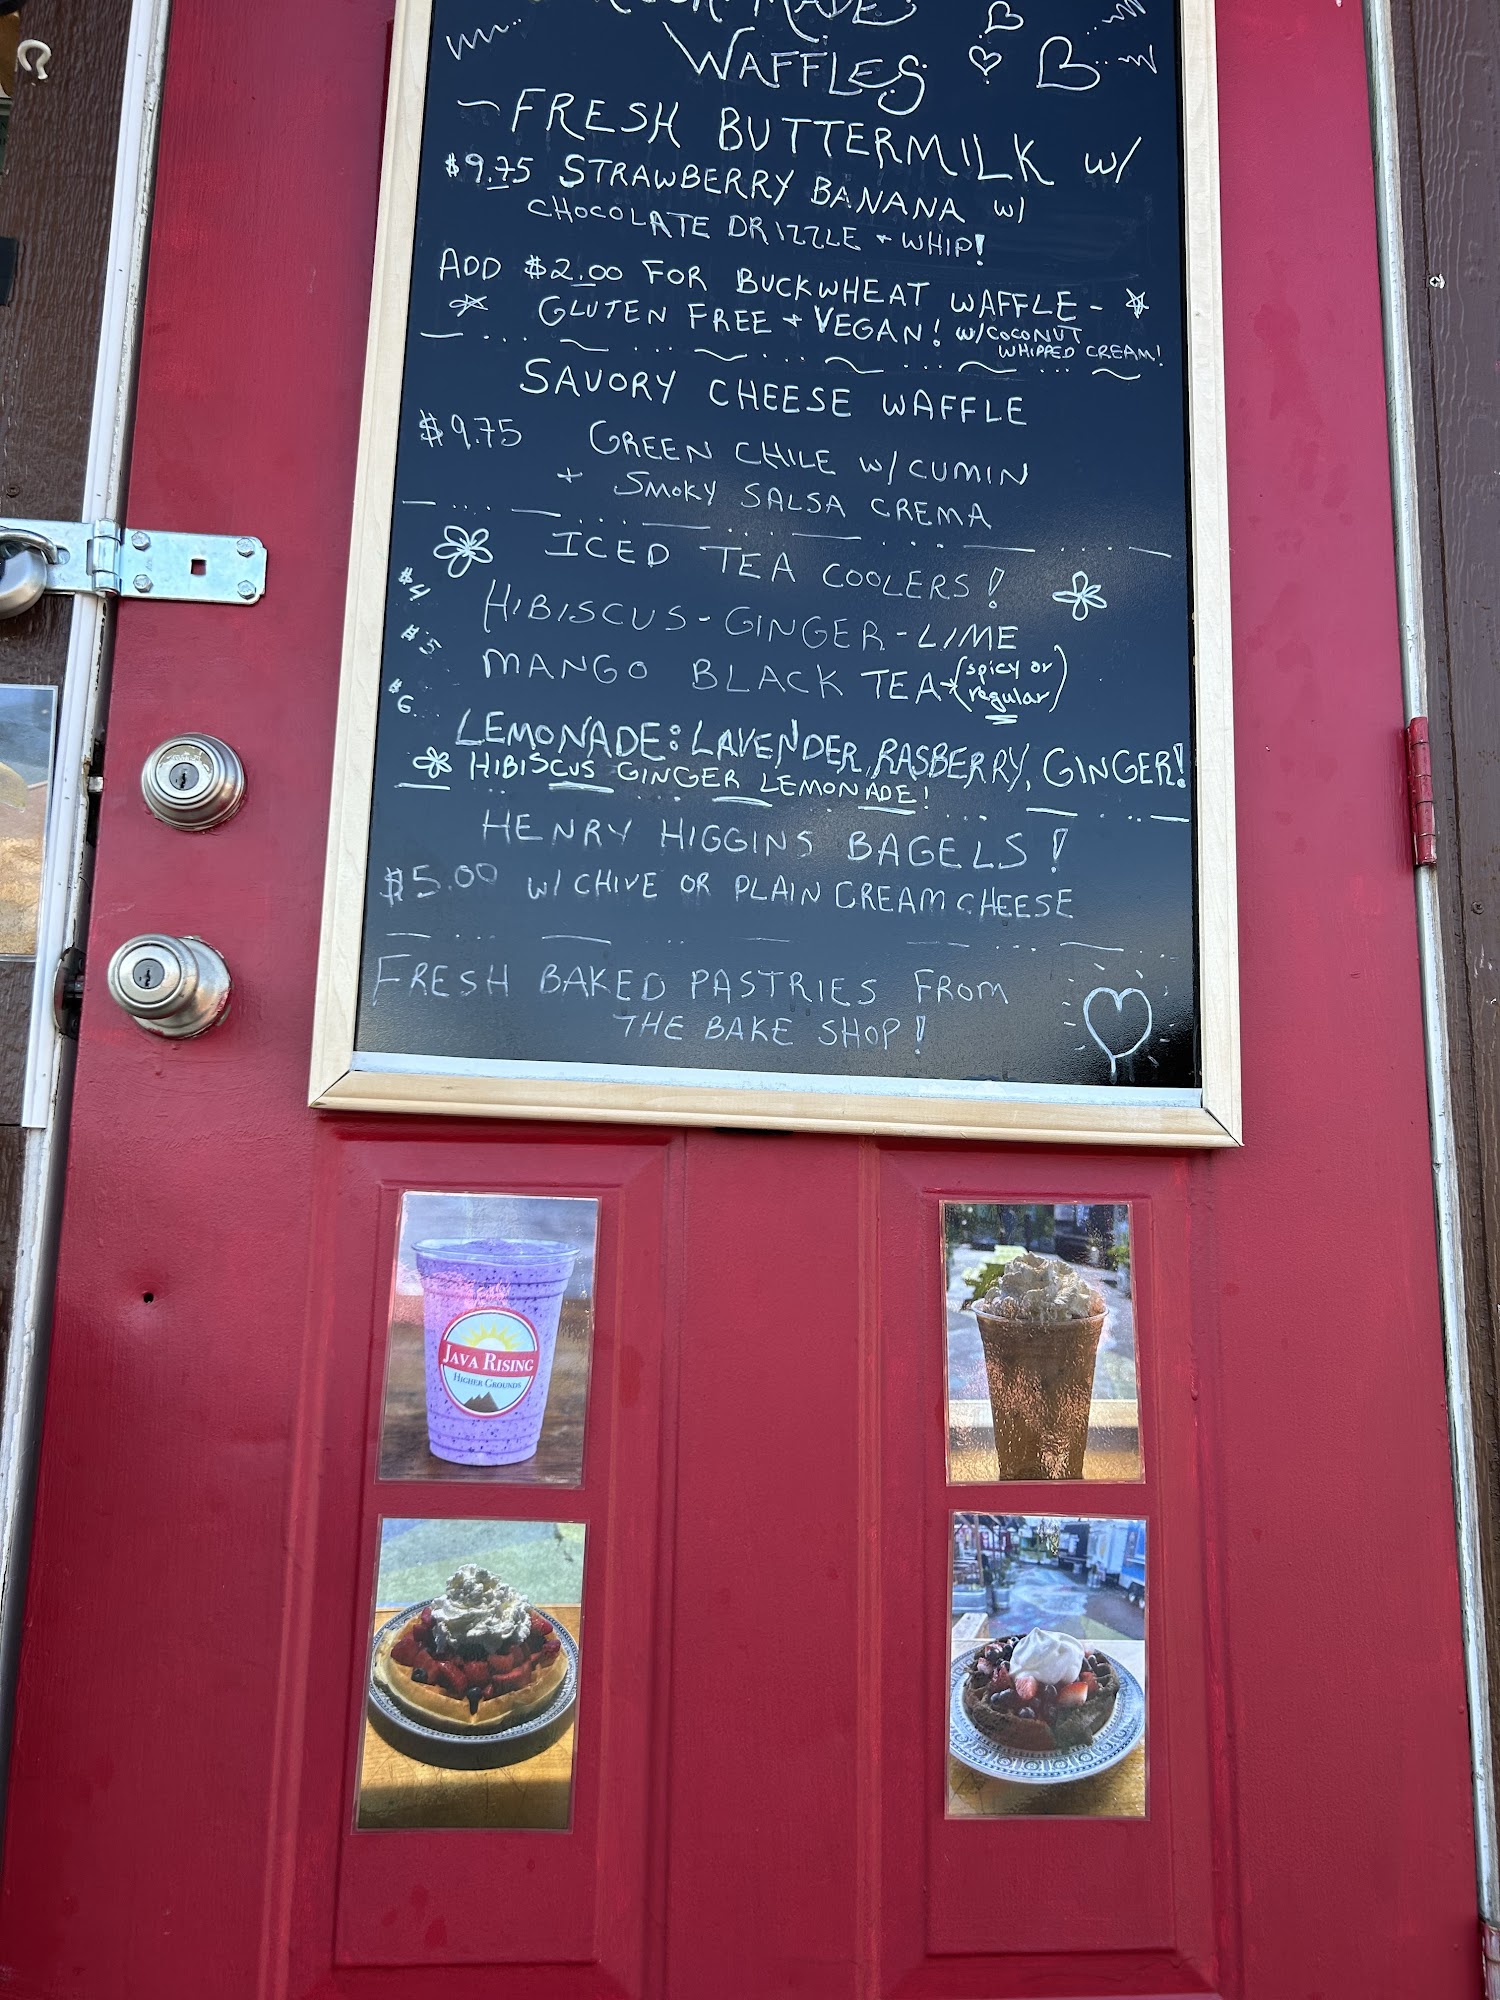 MADE
WAFFLES
~ FRESH BUTTERMILK w/
$9.75 STRAWBERRY BANANA w/
CHOCOLATE DRIZZLE + WHIP!
ADD $2.00 FOR BUCKWHEAT WAFFLE -
GLUTEN FREE + VEGAN! w/COCONUT
WHIPPED CREAM!
SAVORY CHEESE WAFFLE
$9.75 GREEN CHILE w/CUMIN
+ SMOKY SALSA CREMA
ICED TEA COOLERS!
$4 HIBISCUS-GINGER-LIME
$5 MANGO BLACK TEA (spicy or
regular)
$6 LEMONADE: LAVENDER, RASBERRY, GINGER!
HIBISCUS GINGER LEMONADE!
HENRY HIGGINS BAGELS!
$5.00 w/ CHIVE OR PLAIN CREAM CHEESE
FRESH BAKED PASTRIES FROM
THE BAKE SHOP!
JAVA RISING
HIGHER GROUNDS